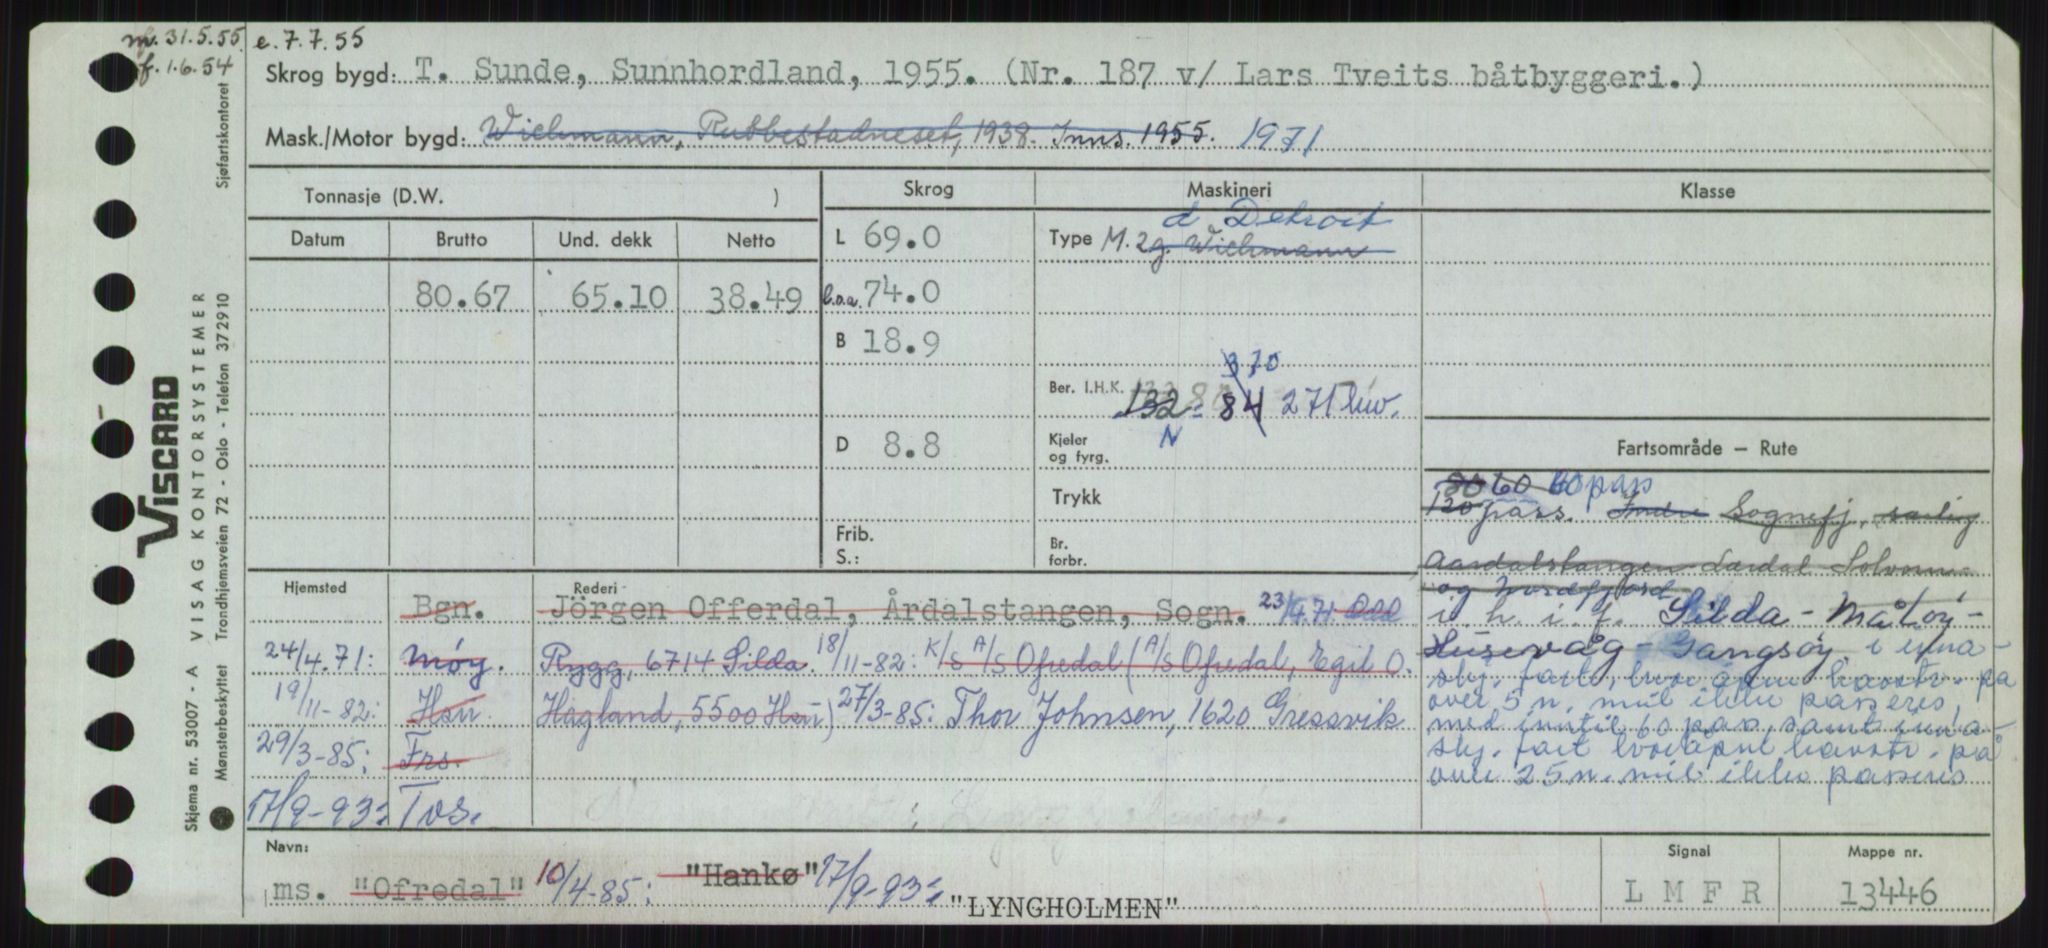 nf. 31.5.55 e. 7.7.55
f. 1.6.54
Skrog bygd: T. Sunde, Sunnhordland, 1955. (Nr. 187 v/ Lars Tveits båtbyggeri.)
Mask./Motor bygd: Wichmann, Rubbestadneset, 1938. Inns. 1955. 1971
Tonnasje (D.W. )
Datum Brutto Und. dekk Netto
80.67 65.10 38.49
Skrog
L 69.0
b.o.a. 74.0
B 18.9
D 8.8
Frib.
S.:
Maskineri
d Detroit
Type M. 2g. Wichmann
370
Ber. I.H.K. 132 84 271 kw.
N
Kjeler
og fyrg.
Trykk
Br.
forbr.
Klasse
Fartsområde – Rute
80 60 60 pass
120 pass. Indre Sognefj, særlig
Aardalstangen Lærdal Solvorn
og Nordfjord
i. h. i. f. Silda - Måløy -
Husevåg - Gangsøy. i inna-
skj. fart, hvor åpne havstr. på
over 5 n. mil ikke passeres,
med inntil 60 pass, samt inna-
skj. fart hvor åpne havstr. på
over 25 n. mil ikke passeres
Hjemsted Rederi
Bgn. Jörgen Offerdal, Årdalstangen, Sogn. 23/4.71.
24/4.71: Møy. Rygg, 6714 Silda. 18/11-82: K/S A/S Ofredal (A/S Ofredal, Egil O.
19/11-82: Hsn. Hagland, 5500 Hsn) 27/3-85: Thor Johnsen, 1620 Gressvik
29/3-85: Frs.
17/9-93: Tvs.
Navn:
ms. "Ofredal" 10/4-85: "Hankø" 17/9-93: "LYNGHOLMEN"
Signal
L M F R
Mappe nr.
13446
Sjøfartskontoret
VISCARD
Skjema nr. 53007 - A VISAG KONTORSYSTEMER
Mønsterbeskyttet Trondhjemsveien 72 - Oslo - Telefon 372910